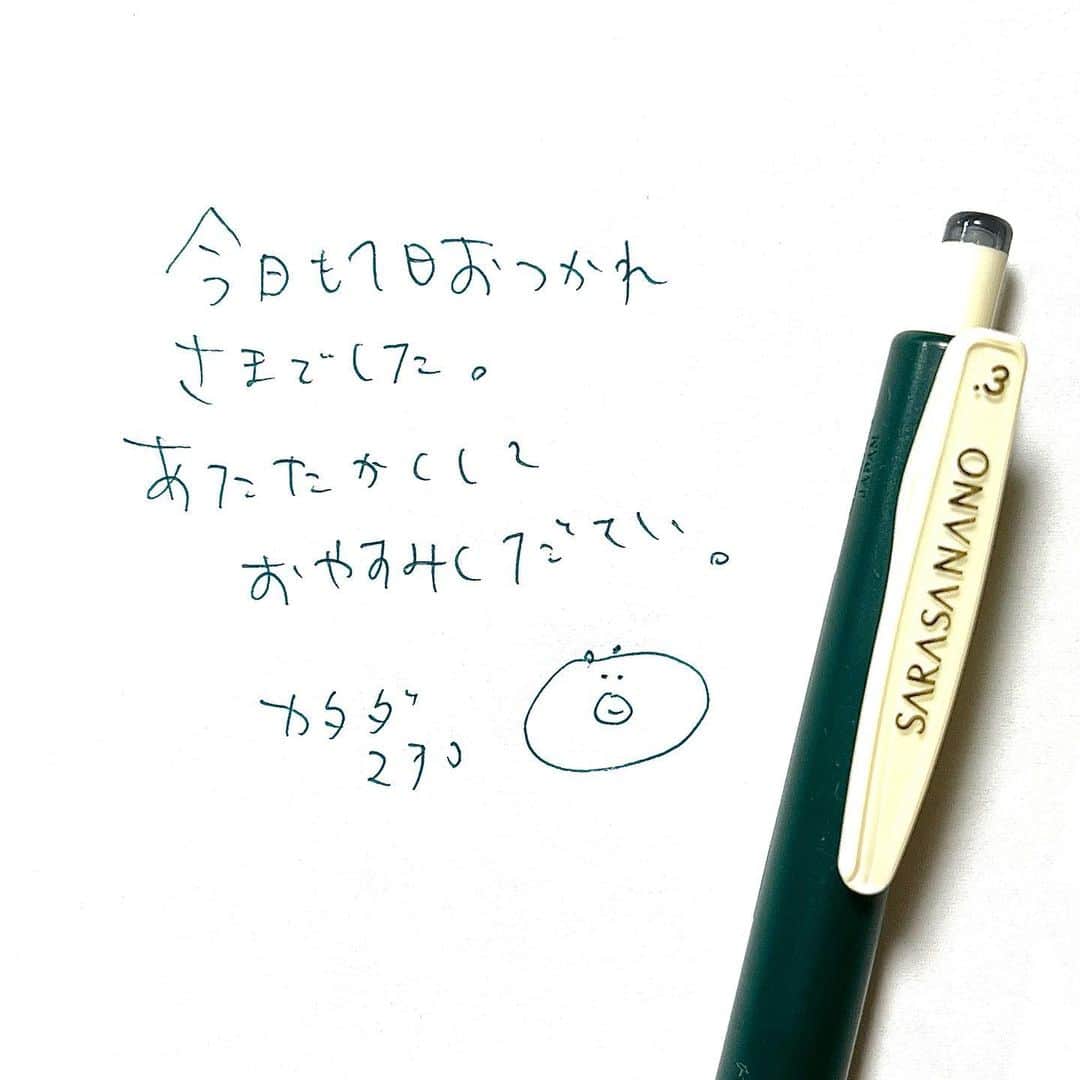 今日も1日おつかれ
さまでした。
あたたかくして
おやすみください。
カタダ
230
.3
SARASA NANO
JAPAN